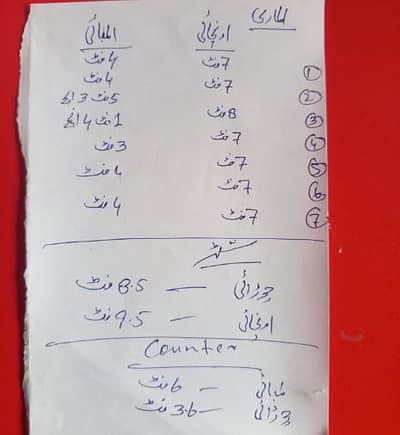 الماری اونچائی لمبائی
1 7فٹ 4فٹ
2 7فٹ 4فٹ
3 8فٹ 5فٹ 3انچ
4 7فٹ 1فٹ 4انچ
5 7فٹ 3فٹ
6 7فٹ 4فٹ
7 7فٹ 4فٹ
شٹر
چوڑائی — 8.5 فٹ
اونچائی — 9.5 فٹ
Counter
لمبائی — 6 فٹ
چوڑائی — 3.6 فٹ